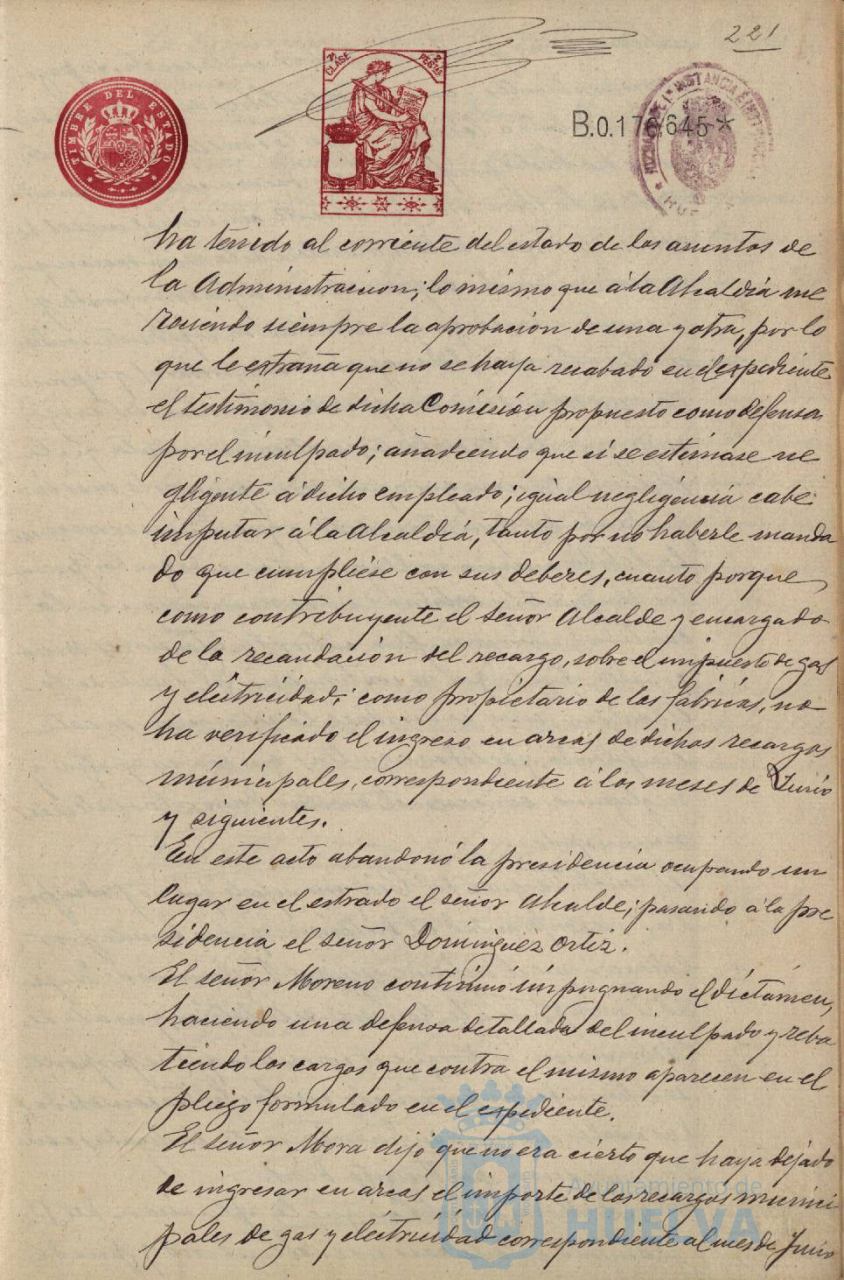 221
TIMBRE DEL ESTADO
CLASE 2 PESETAS
B.0.176.645*
JUZGADO DE 1ª INSTANCIA É INSTRUCCION * HUELVA
ha tenido al corriente del estado de los asuntos de
la Administracion; lo mismo que á la Alcaldía me
reciendo siempre la aprobación de una y otra, por lo
que le extraña que no se haya recabado en el expediente
el testimonio de dicha Comisión propuesto como defensa
por el inculpado; añadiendo que si se estimase ne
gligente á dicho empleado; igual negligencia cabe
imputar á la Alcaldía, tanto por no haberle manda
do que cumpliese con sus deberes, cuanto porque
como contribuyente el señor Alcalde y encargado
de la recaudación del recargo, sobre el impuesto de gas
y eléctricidad; como propietario de las fabricas, no
ha verificado el ingreso en arcas de dichos recargos
municipales, correspondiente á los meses de Junio
y siguientes.
En este acto abandonó la presidencia ocupando un
lugar en el estrado el señor Alcalde; pasando á la pre
sidencia el señor Dominguez Ortiz.
El señor Moreno continuó impugnando el dictámen,
haciendo una defensa detallada del inculpado y reba
tiendo los cargos que contra el mismo aparecen en el
pliego formulado en el expediente.
El señor Mora dijo que no era cierto que haya dejado
de ingresar en arcas el importe de los recargos munici
pales de gas y eléctricidad correspondiente al mes de Junio
Ayuntamiento de
HUELVA